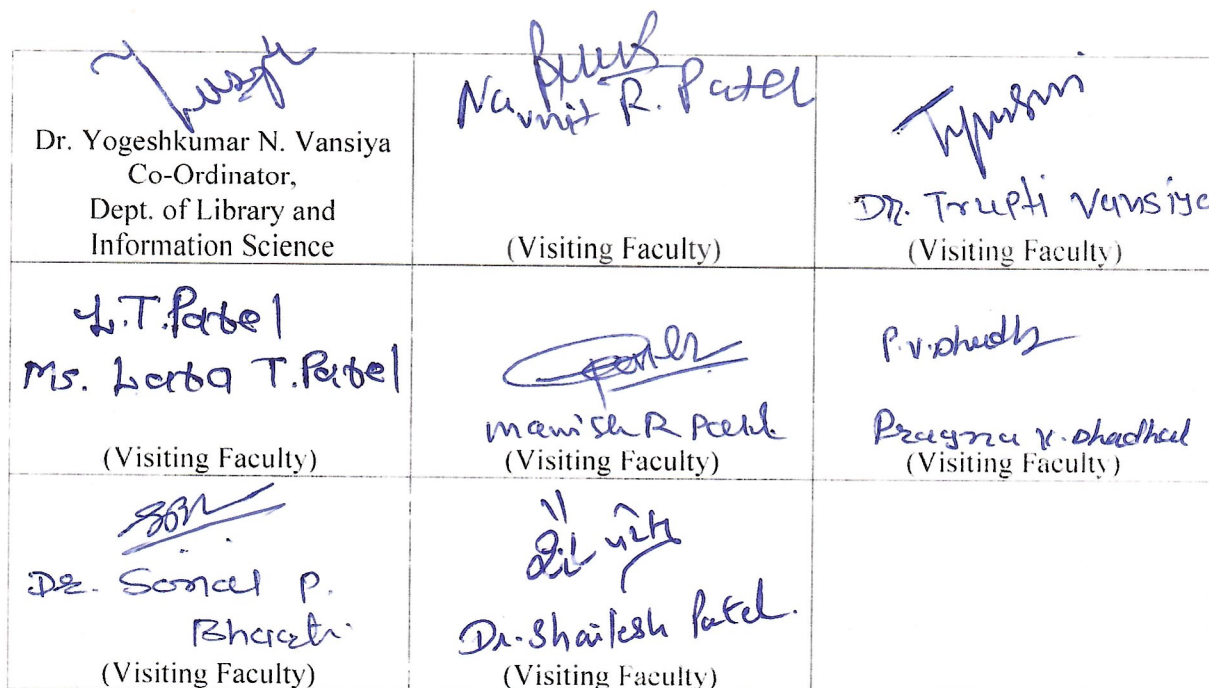 Dr. Yogeshkumar N. Vansiya
Co-Ordinator,
Dept. of Library and
Information Science
Navnit R. Patel
(Visiting Faculty)
Dr. Trupti Vansiya
(Visiting Faculty)
L.T.Patel
Ms. Lata T.Patel
(Visiting Faculty)
Manish R Patel
(Visiting Faculty)
Pragna V. Dhadhal
(Visiting Faculty)
Dr. Sonal P.
Bharati
(Visiting Faculty)
Dr. Shailesh Patel.
(Visiting Faculty)